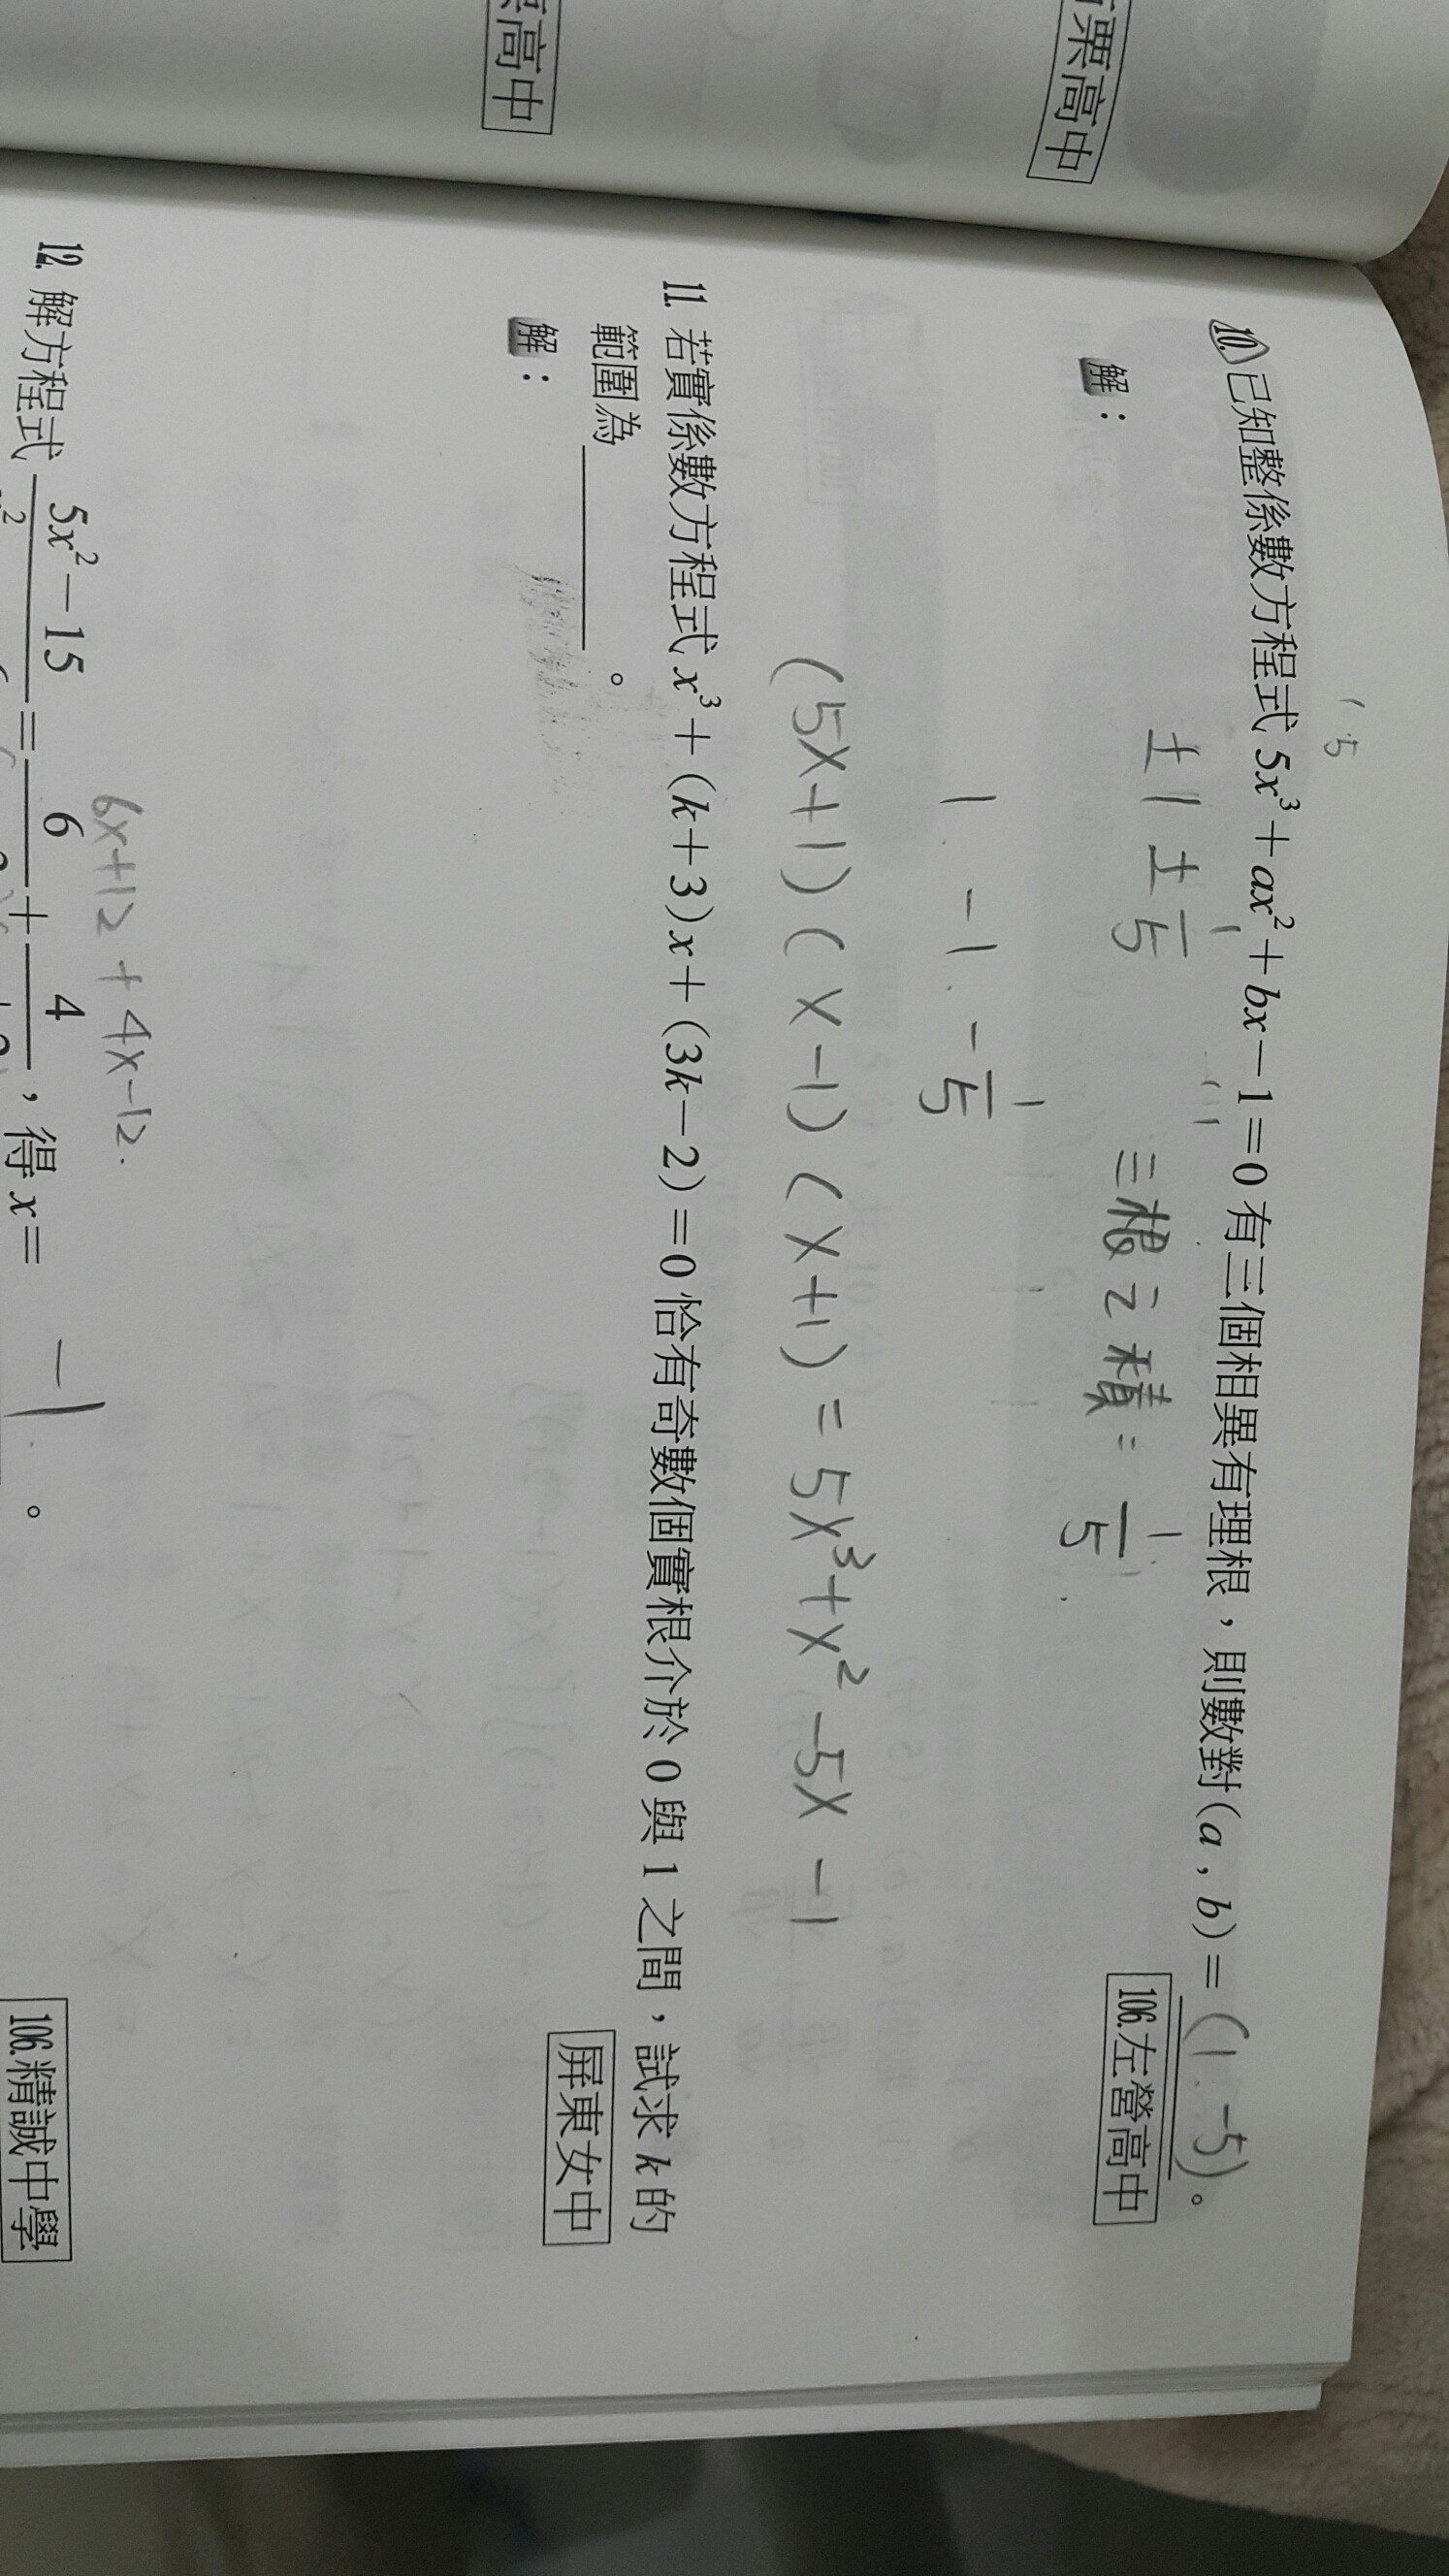 栗高中
高中
( 5
10. 已知整係數方程式 5x³+ax²+bx-1=0 有三個相異有理根，則數對(a , b)= (1. -5) 。
106.左營高中
解：
±1 ±1/5 三根之積 = 1/5
1 . -1 . -1/5
(5x+1)(x-1)(x+1) = 5x³+x²-5x-1
11. 若實係數方程式 x³+(k+3)x+(3k-2)=0 恰有奇數個實根介於 0 與 1 之間，試求 k 的
範圍為 ________ 。
屏東女中
解：
6x+12 + 4x-12.
12. 解方程式 5x²-15 = 6 + 4 ，得 x= -1 。
106.精誠中學